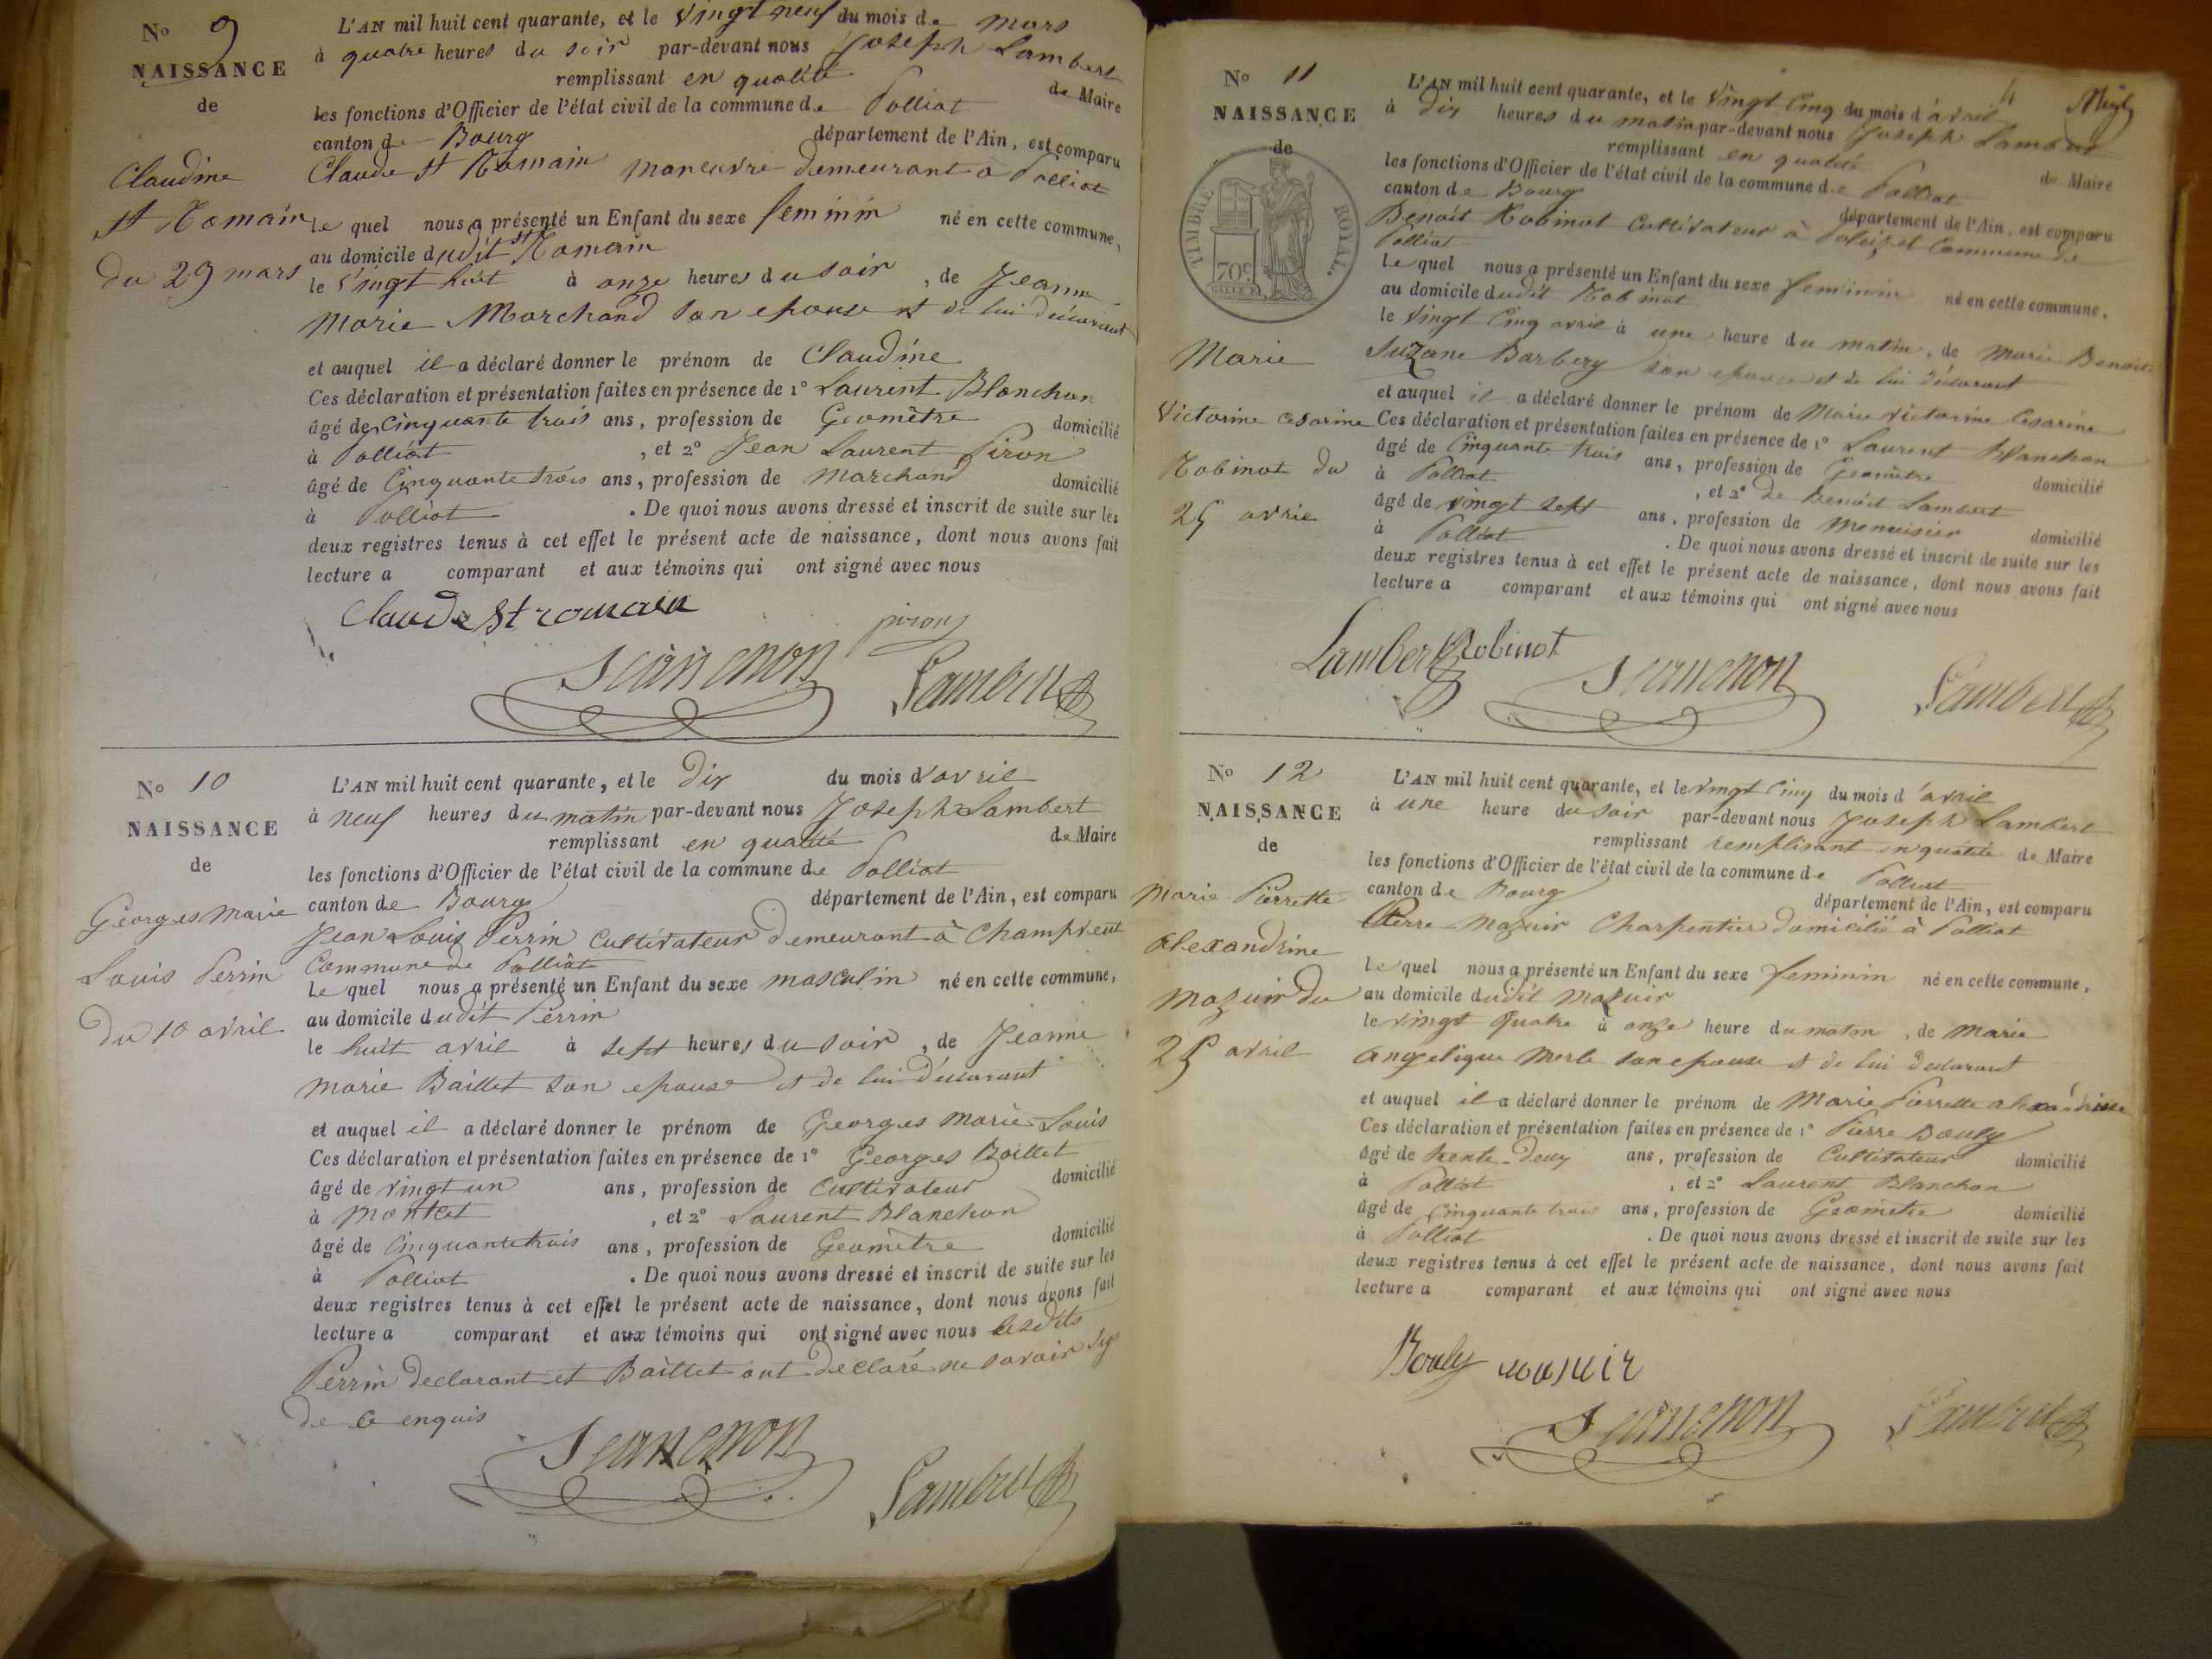 No 9
NAISSANCE
de
Claudine
St Romain
du 29 mars
L'AN mil huit cent quarante, et le vingt neuf du mois de mars
à quatre heures du soir par-devant nous Joseph Lambert
remplissant en qualité de Maire
les fonctions d'Officier de l'état civil de la commune de Polliat
canton de Bourg département de l'Ain, est comparu
Claude St Romain manoeuvre demeurant à Polliat
le quel nous a présenté un Enfant du sexe feminin né en cette commune,
au domicile dudit St Romain
le vingt huit à onze heures du soir, de Jeanne
Marie Marchand son epouse et de lui déclarant
et auquel il a déclaré donner le prénom de Claudine
Ces déclaration et présentation faites en présence de 1° Laurent Blanchon
âgé de cinquante trois ans, profession de Geomètre domicilié
à Polliat, et 2° Jean Laurent Piron
âgé de Cinquante trois ans, profession de marchand domicilié
à Polliat. De quoi nous avons dressé et inscrit de suite sur les
deux registres tenus à cet effet le présent acte de naissance, dont nous avons fait
lecture a comparant et aux témoins qui ont signé avec nous
Claude St romain
piron
Lambert
No 10
NAISSANCE
de
Georges Marie
Louis Perrin
du 10 avril
L'AN mil huit cent quarante, et le dix du mois d'avril
à neuf heures du matin par-devant nous Joseph Lambert
remplissant en qualité de Maire
les fonctions d'Officier de l'état civil de la commune de Polliat
canton de Bourg département de l'Ain, est comparu
Jean Louis Perrin Cultivateur demeurant à Champvent
Commune de Polliat
le quel nous a présenté un Enfant du sexe masculin né en cette commune,
au domicile dudit Perrin
le huit avril à sept heures du soir, de Jeanne
Marie Baillet son epouse et de lui déclarant
et auquel il a déclaré donner le prénom de Georges Marie Louis
Ces déclaration et présentation faites en présence de 1° Georges Baillet
âgé de vingt un ans, profession de Cultivateur domicilié
à Montcet, et 2° Laurent Blanchon
âgé de cinquante trois ans, profession de Geomètre domicilié
à Polliat. De quoi nous avons dressé et inscrit de suite sur les
deux registres tenus à cet effet le présent acte de naissance, dont nous avons fait
lecture a comparant et aux témoins qui ont signé avec nous lesdits
Perrin declarant et Baillet ont declaré ne savoir sig
de ce enquis
Lambert
No 11
NAISSANCE
de
TIMBRE ROYAL.
70c
Marie
Victorine Cesarine
Robinot du
25 avril
4
L'AN mil huit cent quarante, et le vingt Cinq du mois d'avril
à dix heures du matin par-devant nous Joseph Lambert
remplissant en qualité de Maire
les fonctions d'Officier de l'état civil de la commune de Polliat
canton de Bourg département de l'Ain, est comparu
Benoit Robinot Cultivateur à Commune de
Polliat
le quel nous a présenté un Enfant du sexe feminin né en cette commune,
au domicile dudit Robinot
le vingt Cinq avril à une heure du matin, de Marie Benoite
Suzane Barbery son epouse et de lui déclarant
et auquel il a déclaré donner le prénom de Marie Victorine Cesarine
Ces déclaration et présentation faites en présence de 1° Laurent Blanchon
âgé de Cinquante trois ans, profession de Geomètre domicilié
à Polliat, et 2° de Benoit Lambert
âgé de vingt sept ans, profession de Menuisier domicilié
à Polliat. De quoi nous avons dressé et inscrit de suite sur les
deux registres tenus à cet effet le présent acte de naissance, dont nous avons fait
lecture a comparant et aux témoins qui ont signé avec nous
Lambert Robinot
Lambert
No 12
NAISSANCE
de
Marie Pierrette
Alexandrine
Mazuir du
25 avril
L'AN mil huit cent quarante, et le vingt Cinq du mois d'avril
à une heure du soir par-devant nous Joseph Lambert
remplissant remplissant en qualité de Maire
les fonctions d'Officier de l'état civil de la commune de Polliat
canton de Bourg département de l'Ain, est comparu
Pierre Mazuir Charpentier domicilié à Polliat
le quel nous a présenté un Enfant du sexe feminin né en cette commune,
au domicile dudit Mazuir
le vingt quatre à onze heure du matin, de Marie
Angelique Merle son epouse et de lui declarant
et auquel il a déclaré donner le prénom de Marie Pierrette alexandrine
Ces déclaration et présentation faites en présence de 1° Pierre Bouly
âgé de trente-deux ans, profession de Cultivateur domicilié
à Polliat, et 2° Laurent Blanchon
âgé de Cinquante trois ans, profession de Geomètre domicilié
à Polliat. De quoi nous avons dressé et inscrit de suite sur les
deux registres tenus à cet effet le présent acte de naissance, dont nous avons fait
lecture a comparant et aux témoins qui ont signé avec nous
Bouly mazuir
Lambert